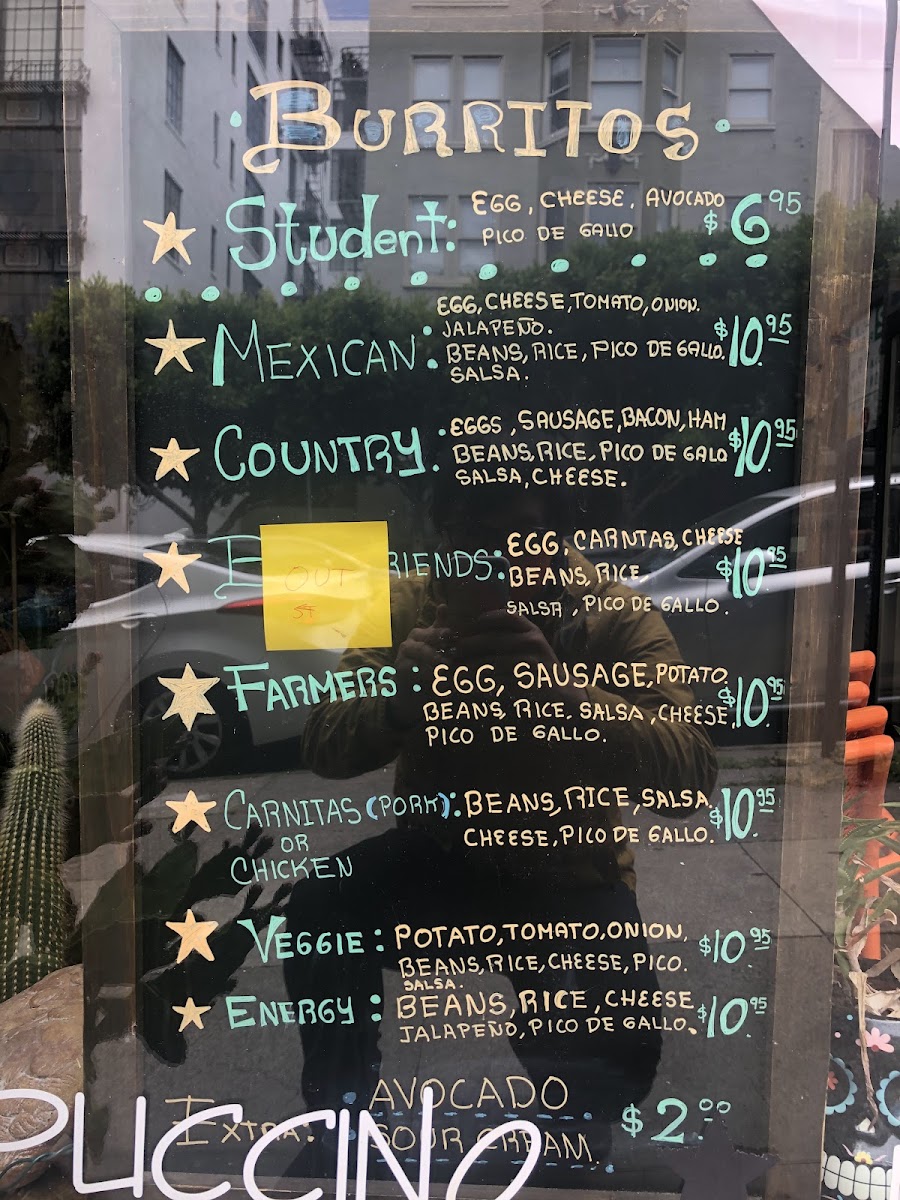 BURRITOS
Student: EGG, CHEESE, AVOCADO
PICO DE GALLO $6.95
MEXICAN: EGG, CHEESE, TOMATO, ONION.
JALAPEÑO.
BEANS, RICE, PICO DE GALLO. $10.95
SALSA.
COUNTRY: EGGS, SAUSAGE, BACON, HAM
BEANS, RICE, PICO DE GALO $10.95
SALSA, CHEESE.
RIENDS: EGG, CARNTAS, CHEESE
OUT BEANS, RICE, $10.95
SALSA, PICO DE GALLO.
FARMERS: EGG, SAUSAGE, POTATO.
BEANS, RICE. SALSA, CHEESE, $10.95
PICO DE GALLO.
CARNITAS (PORK): BEANS, RICE, SALSA. $10.95
OR CHEESE, PICO DE GALLO.
CHICKEN
VEGGIE: POTATO, TOMATO, ONION, $10.95
BEANS, RICE, CHEESE, PICO.
SALSA.
ENERGY: BEANS, RICE, CHEESE $10.95
JALAPEÑO, PICO DE GALLO.
EXTRA: AVOCADO $2.00
SOUR CREAM
PUCCINO